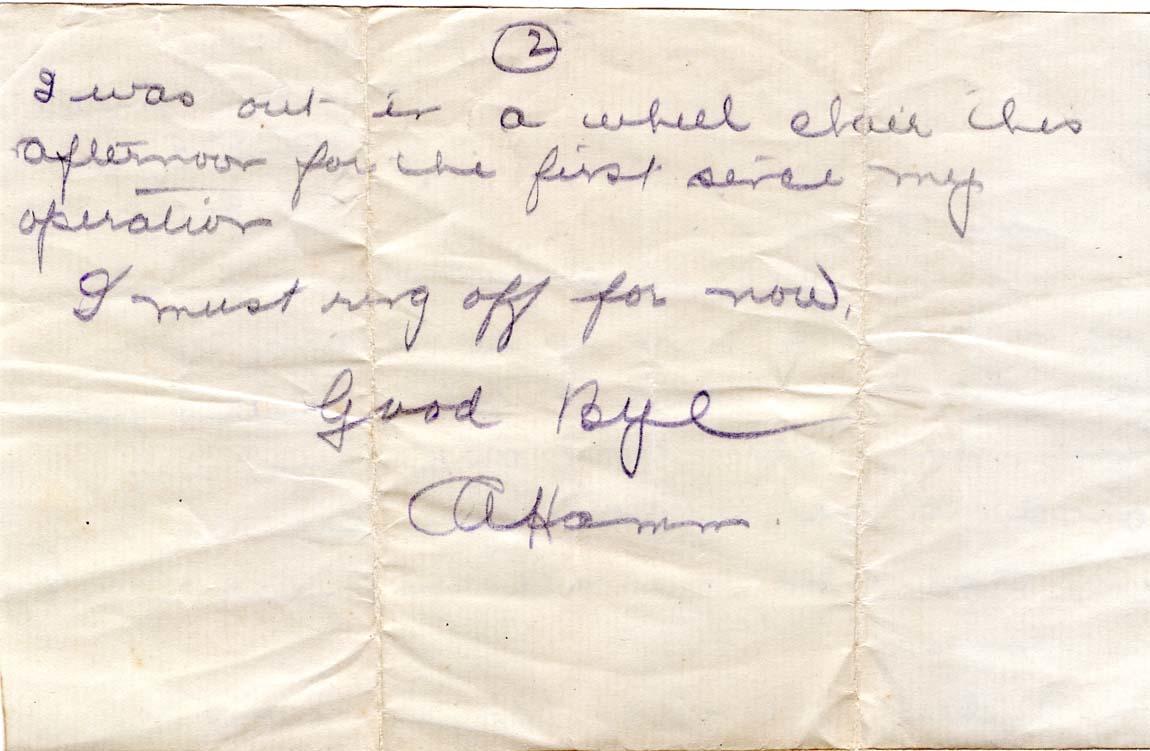 2
I was out in a wheel chair this
afternoon for the first since my
operation
I must ring off for now.
Good Bye
AHamm